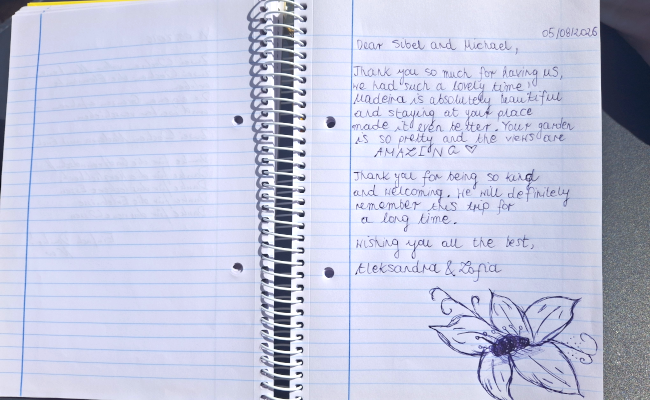 05/08/2026
Dear Sibel and Michael,
Thank you so much for having us,
we had such a lovely time!
Madeira is absolutely beautiful
and staying at your place
made it even better. Your garden
is so pretty and the views are
AMAZING ♡
Thank you for being so kind
and welcoming. We will definitely
remember this trip for
a long time.
Wishing you all the best,
Aleksandra & Zofia